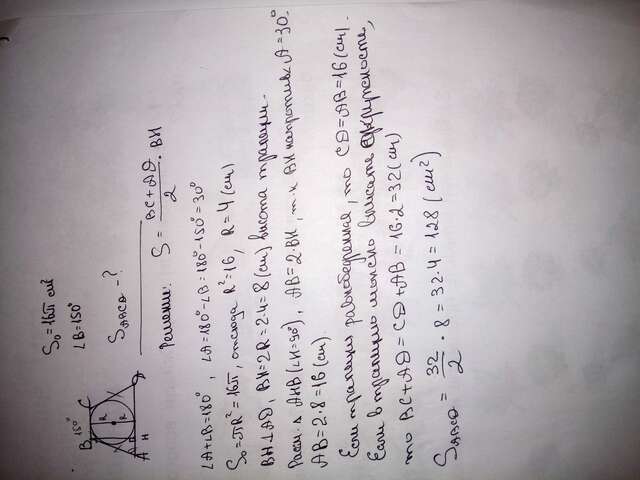 B 150° C
R
R
A H D
S₀=16π см²
∠B=150°
S_ABCD - ?
Решение: S = (BC+AD)/2 · BH
∠A+∠B=180°, ∠A=180°-∠B=180°-150°=30°
S₀=πR²=16π, отсюда R²=16, R=4 (см)
BH⊥AD, BH=2R=2·4=8 (см) высота трапеции.
Расм. Δ AHB (∠H=90°), AB=2·BH, т.к BH напротив ∠A=30°.
AB=2·8=16 (см).
Если трапеция равнобедренная, то CD=AB=16 (см).
Если в трапецию можно вписать окружность,
то BC+AD=CD+AB=16·2=32 (см)
S_ABCD = 32/2 · 8 = 32·4=128 (см²)